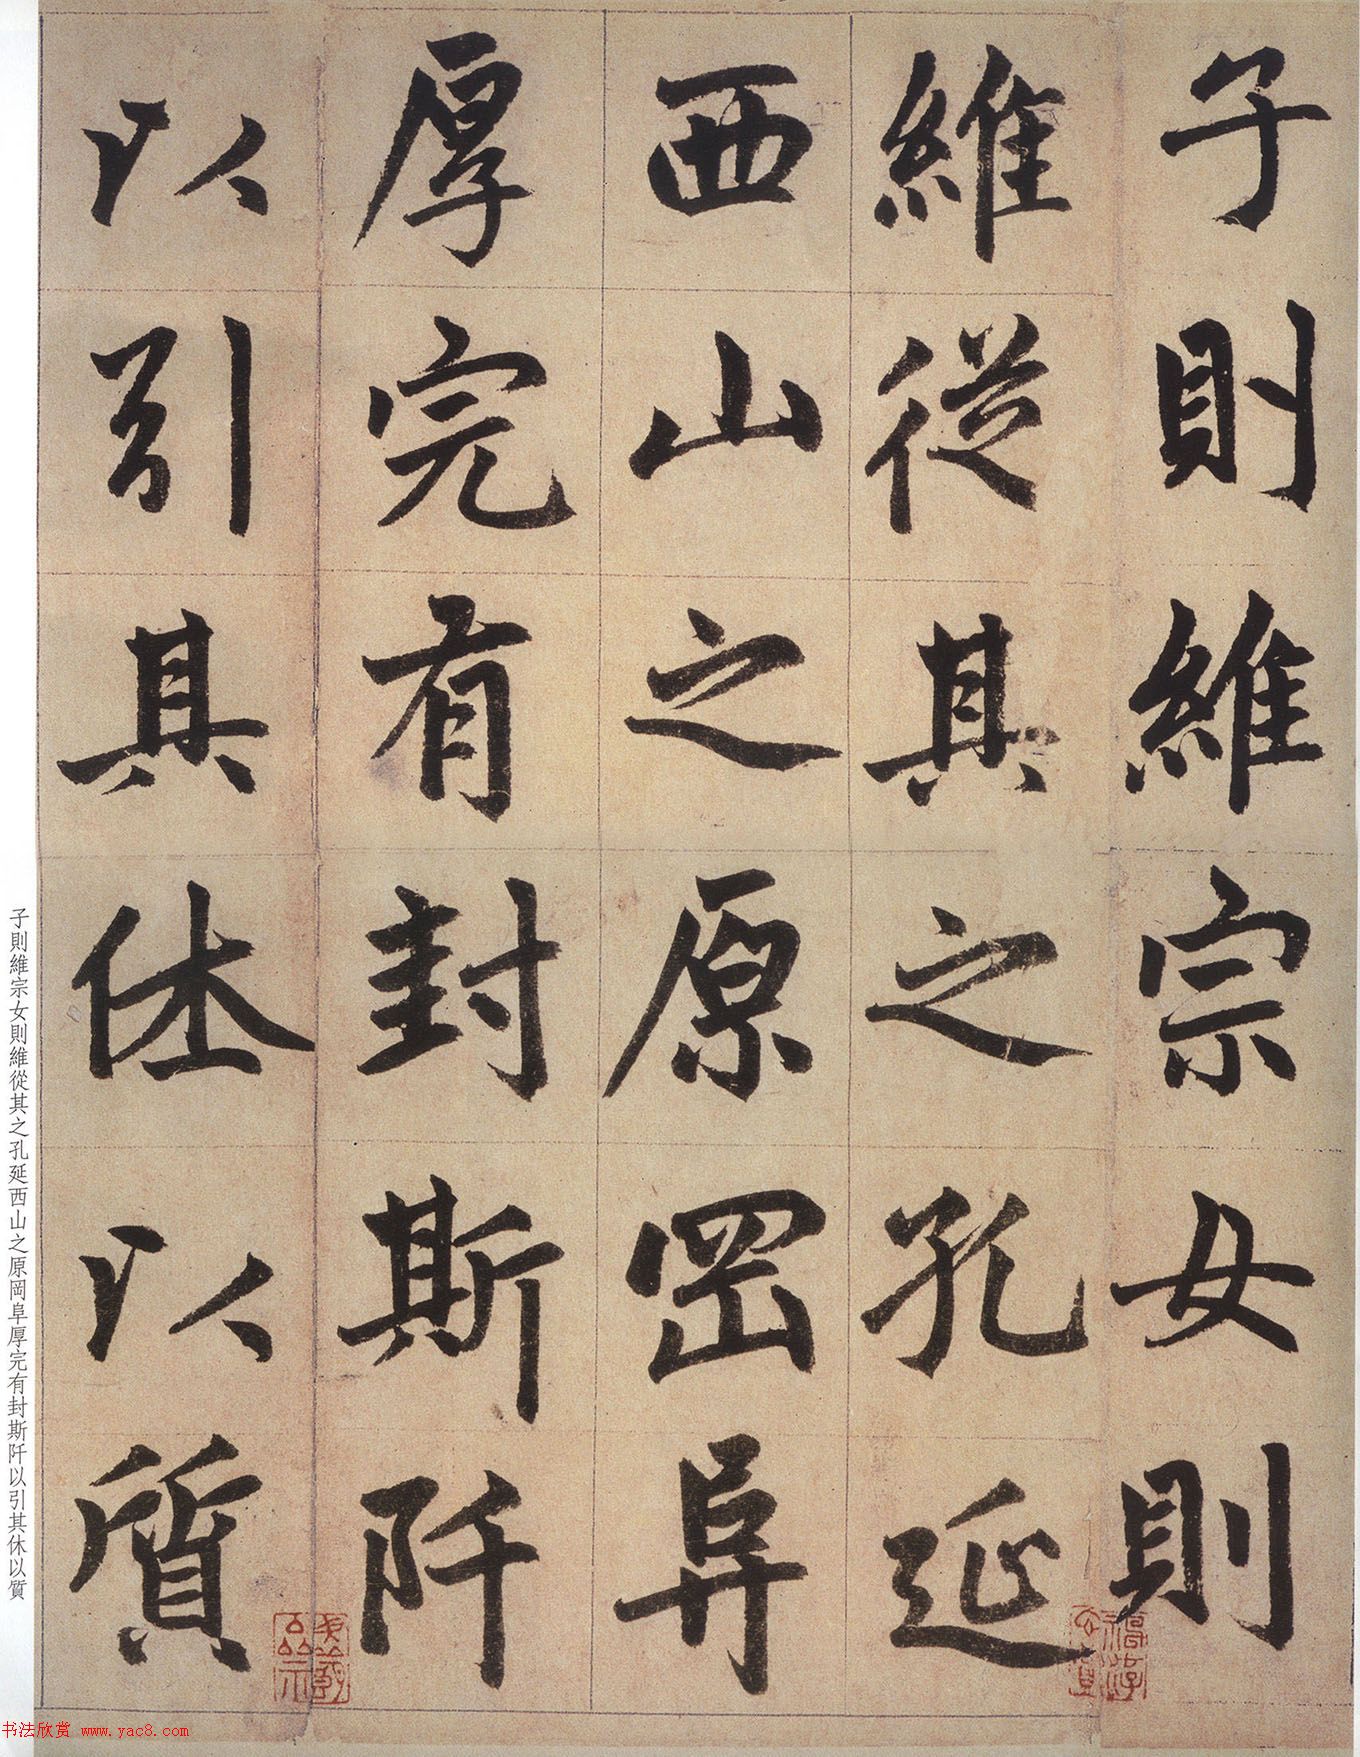 子則維宗女則
維從其之孔延
西山之原罡阜
厚完有封斯阡
以引其休以質
子則維宗女則維從其之孔延西山之原岡阜厚完有封斯阡以引其休以質
书法欣赏 www.yac8.com